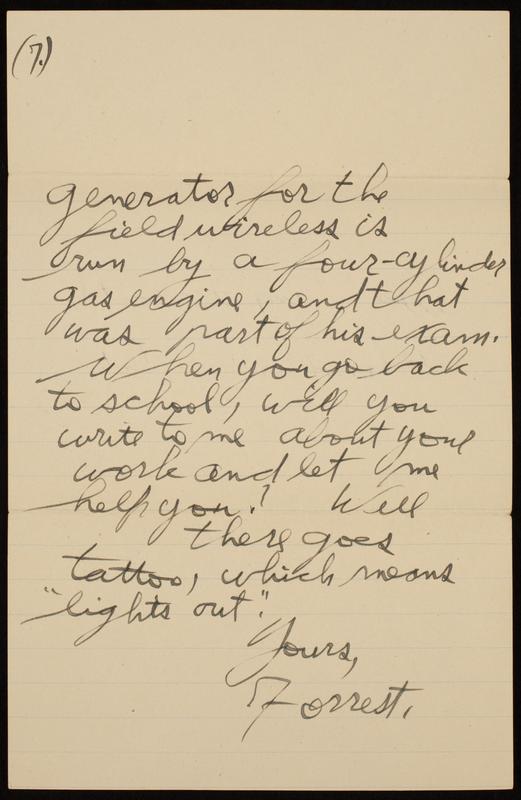 (7.)
generator for the
field wireless is
run by a four-cylinder
gas engine, and that
was part of his exam.
When you go back
to school, will you
write to me about your
work and let me
help you? Well
there goes
tattoo, which means
"lights out".
Yours,
Forrest.